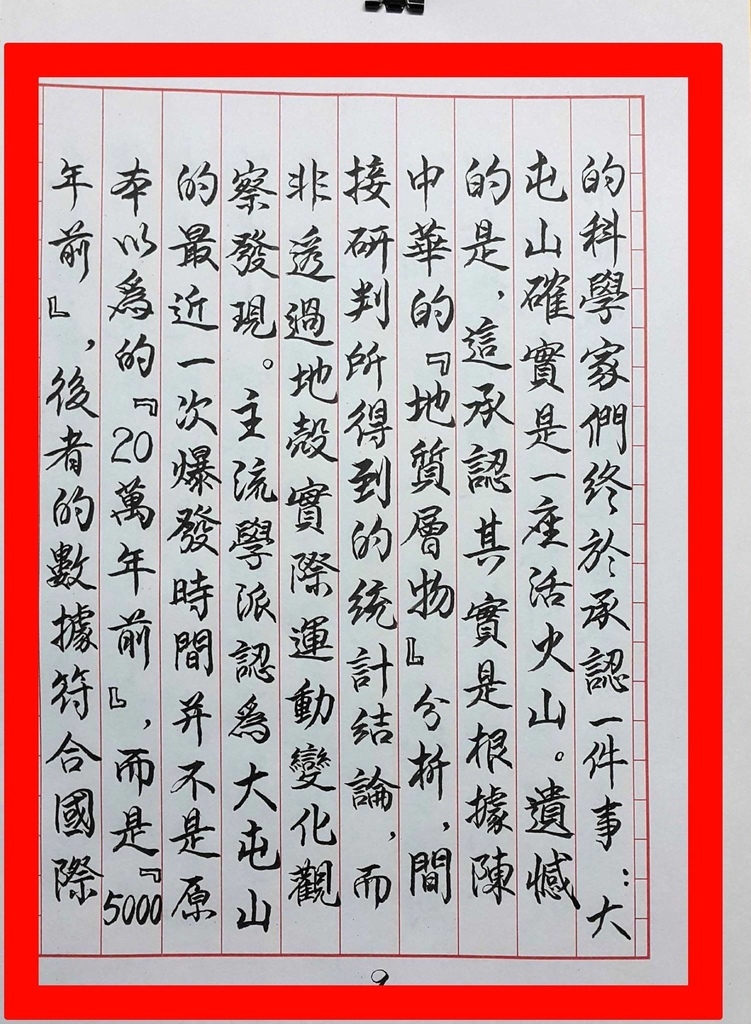 的科學家們終於承認一件事：大
屯山確實是一座活火山。遺憾
的是，這承認其實是根據陳
中華的『地質層物』分析，間
接研判所得到的統計結論，而
非透過地殼實際運動變化觀
察發現。主流學派認為大屯山
的最近一次爆發時間并不是原
本以為的『20萬年前』，而是『5000
年前』，後者的數據符合國際